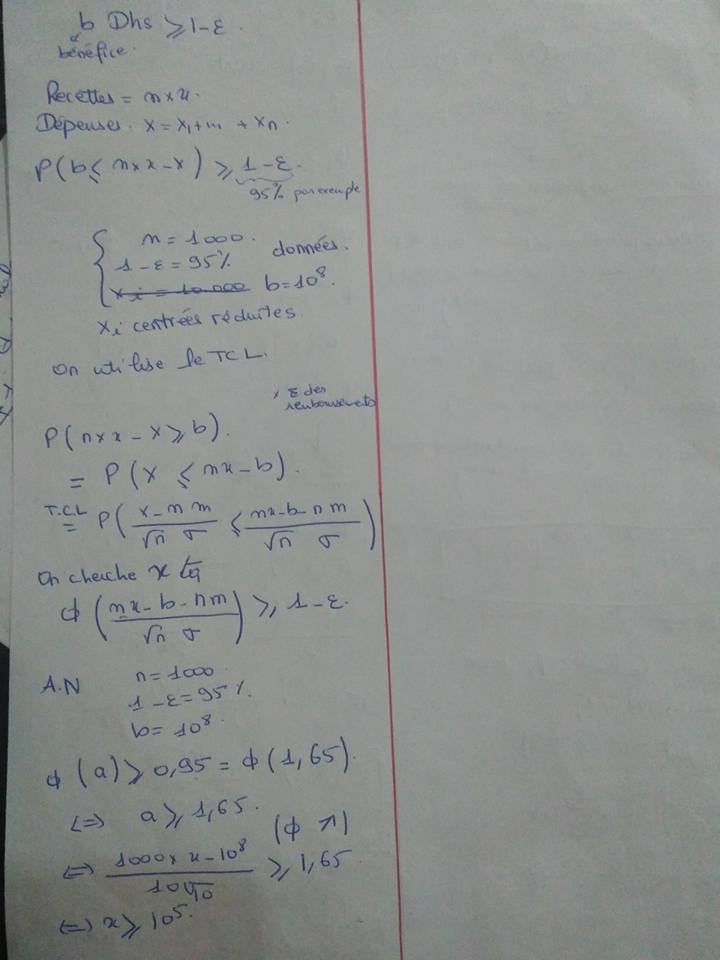 b Dhs ≥ 1-ε.
bénéfice.
Recettes = n×x.
Dépenses. X = X₁+...+Xn.
P(b ≤ n×x - X) ≥ 1-ε.
95% par exemple
n = 1000.
1-ε = 95% données.
b = 10⁸.
Xi centrées réduites
On utilise le TCL.
x Σ des
remboursements
P(n×x - X ≥ b).
= P(X ≤ nx - b).
T.C.L = P( (X - nm)/(√n σ) ≤ (nx - b - nm)/(√n σ) )
On cherche x tq
ϕ( (nx - b - nm)/(√n σ) ) ≥ 1-ε.
A.N n = 1000
1-ε = 95%.
b = 10⁸.
ϕ(a) ≥ 0,95 = ϕ(1,65).
⇔ a ≥ 1,65.
(ϕ ↗)
⇔ (1000 × x - 10⁸)/(10√10) ≥ 1,65
⇔ x ≥ 10⁵.